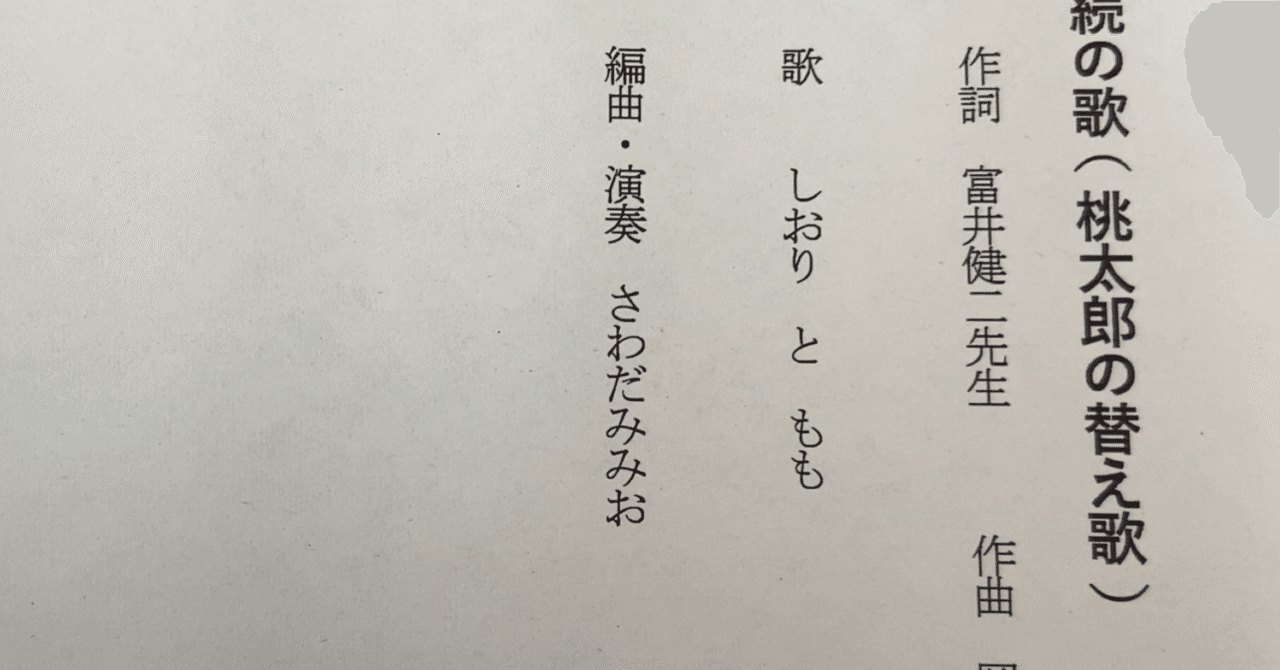 続の歌（桃太郎の替え歌）
作詞　富井健二先生　　　作曲
歌　　しおり　と　もも
編曲・演奏　さわだみみお